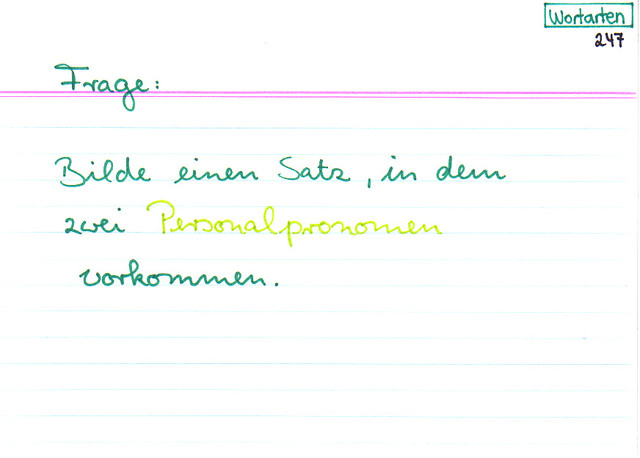 Wortarten
247
Frage:
Bilde einen Satz, in dem
zwei Personalpronomen
vorkommen.